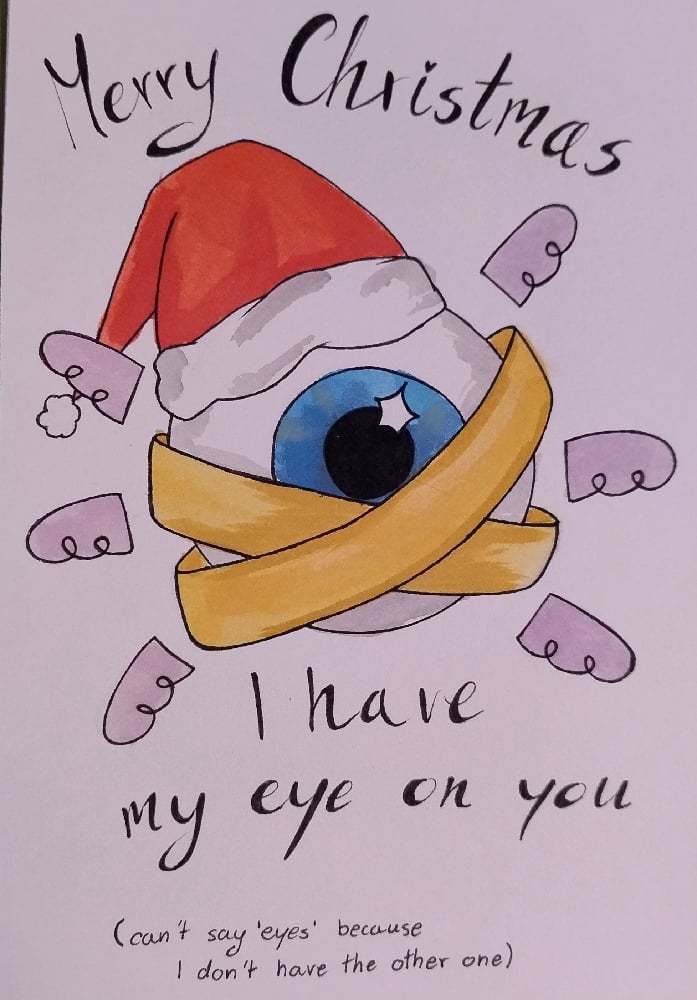 Merry Christmas
I have
my eye on you
(can't say 'eyes' because
I don't have the other one)